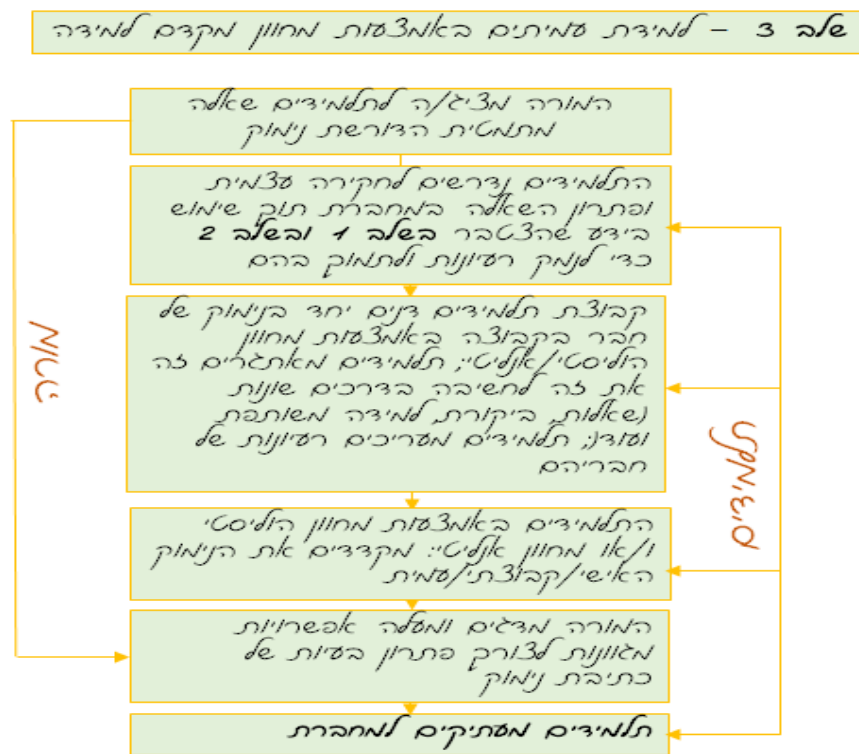 שלב 3 – למידת עמיתים באמצעות מחוון מקדם למידה
המורה מציג/ה לתלמידים שאלה
מתמטית הדורשת נימוק
התלמידים נדרשים לחקירה עצמית
ופתרון השאלה במחברת תוך שימוש
בידע שהצטבר בשלב 1 ובשלב 2
כדי לנמק רעיונות ולתמוך בהם
קבוצת תלמידים דנים יחד בנימוק של
חבר בקבוצה באמצעות מחוון
הוליסטי/אנליטי; תלמידים מאתגרים זה
את זה לחשיבה בדרכים שונות
(שאלות, ביקורת, למידה משותפת
ועוד); תלמידים מעריכים רעיונות של
חבריהם
התלמידים באמצעות מחוון הוליסטי
ו/או מחוון אנליטי: מקדדים את הנימוק
האישי/קבוצתי/עמית
המורה מדגים ומעלה אפשרויות
מגוונות לצורך פתרון בעיות של
כתיבת נימוק
תלמידים מעתיקים למחברת
תלמידים